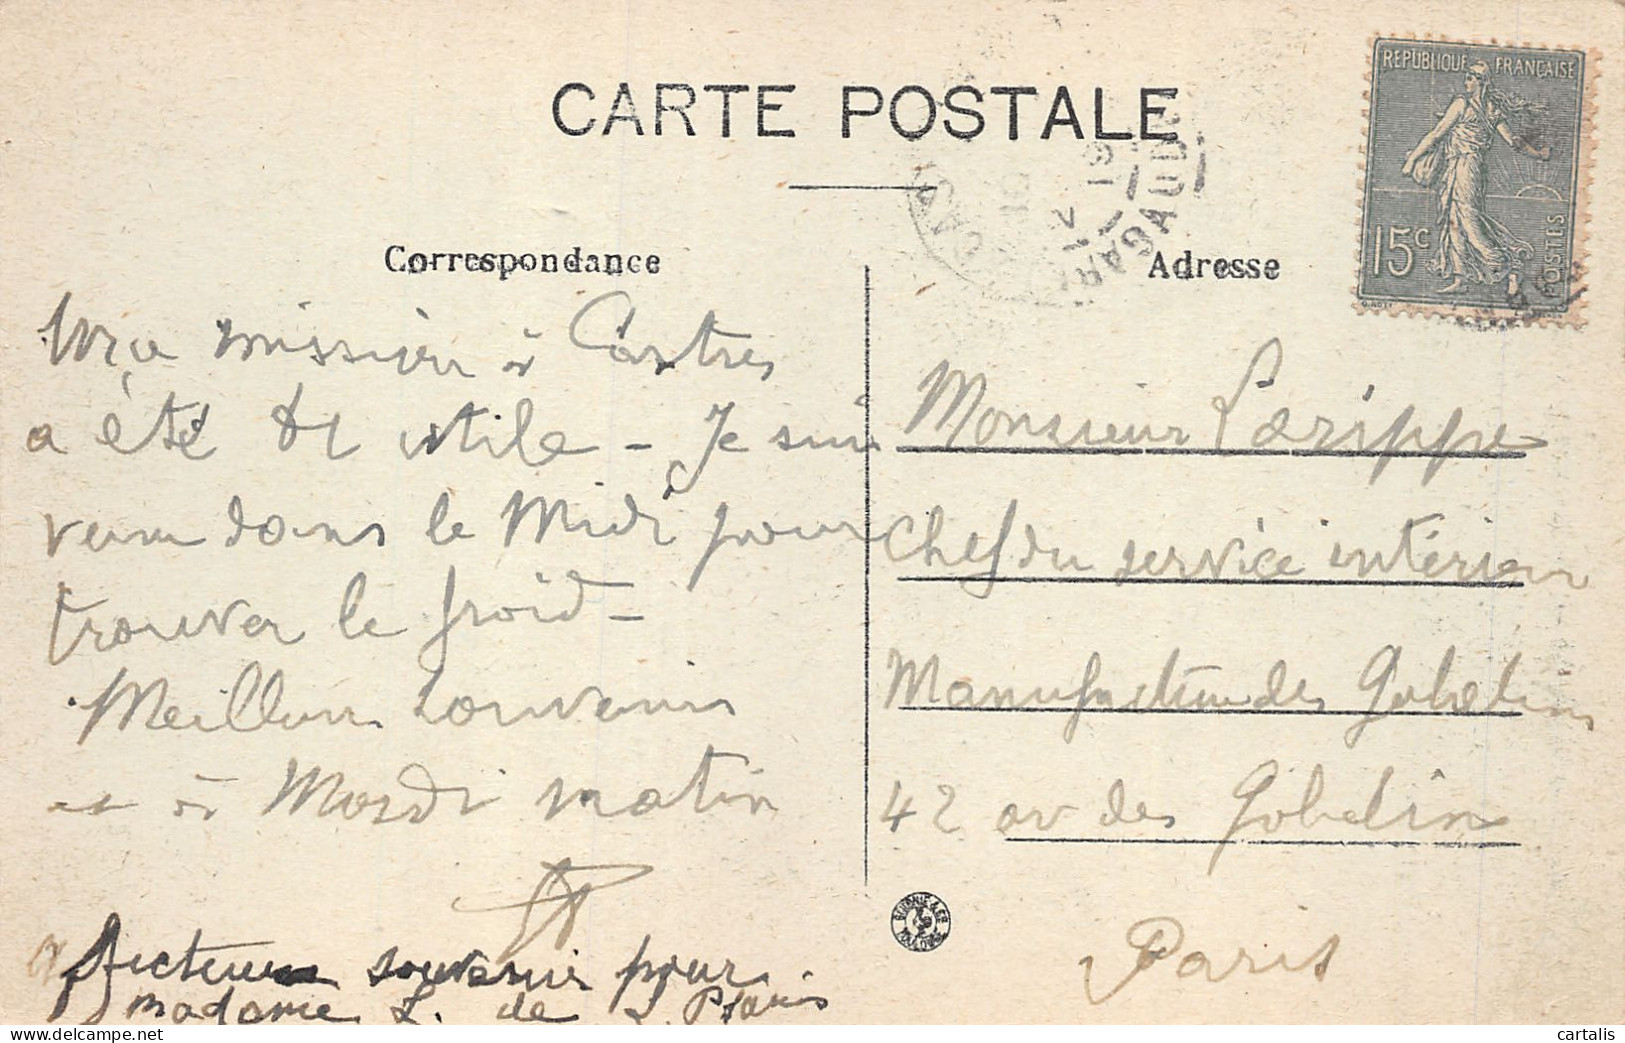 CARTE POSTALE
REPUBLIQUE FRANÇAISE
15c
POSTES
Correspondance
Ma mission à Castres
a été utile - Je suis
venu dans le Midi pour
trouver le froid -
Meilleurs souvenirs
à Mardi matin
souvenir pour
Madame L. de
Adresse
Monsieur Larippe
Chef du service intérieur
Manufacture des Gobelins
42 av des Gobelins
Paris
cartalis